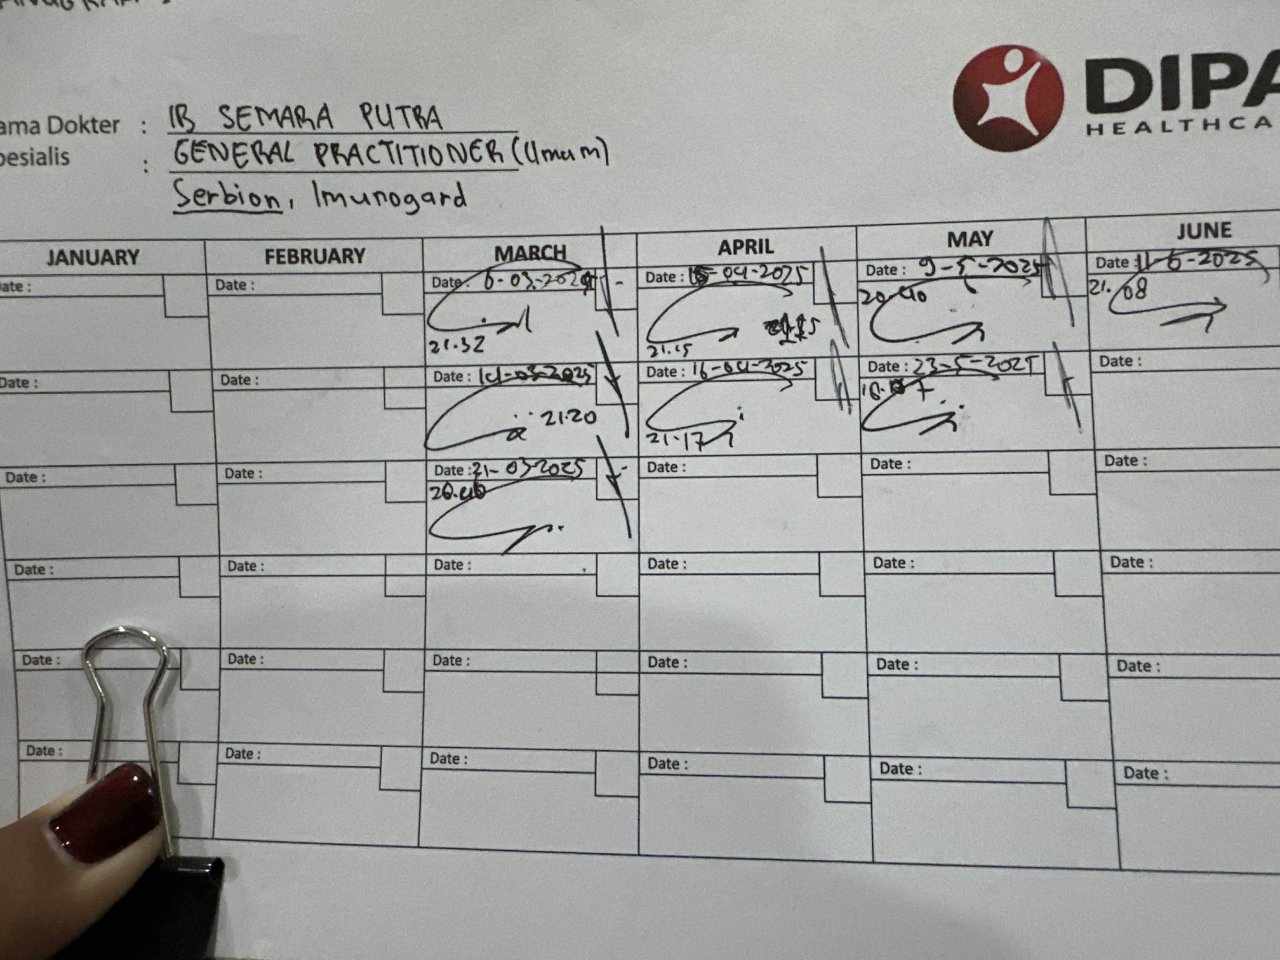 DIPA
HEALTHCA
ama Dokter : IB SEMARA PUTRA
pesialis : GENERAL PRACTITIONER (Umum)
Serbion, Imunogard
JANUARY FEBRUARY MARCH APRIL MAY JUNE
ate: Date : Date: 6-03-2024 Date : 15-04-2025 Date : 9-5-2025 Date : 11-6-2025
21.32 21.15 20.40 21.08
Date : Date : Date : 14-03-2025 Date : 16-04-2025 Date : 23-5-2025 Date :
21.20 21.17
Date : Date : Date : 21-03-2025 Date : Date : Date :
20.40
Date : Date : Date : Date : Date : Date :
Date : Date : Date : Date : Date : Date :
Date : Date : Date : Date : Date : Date :